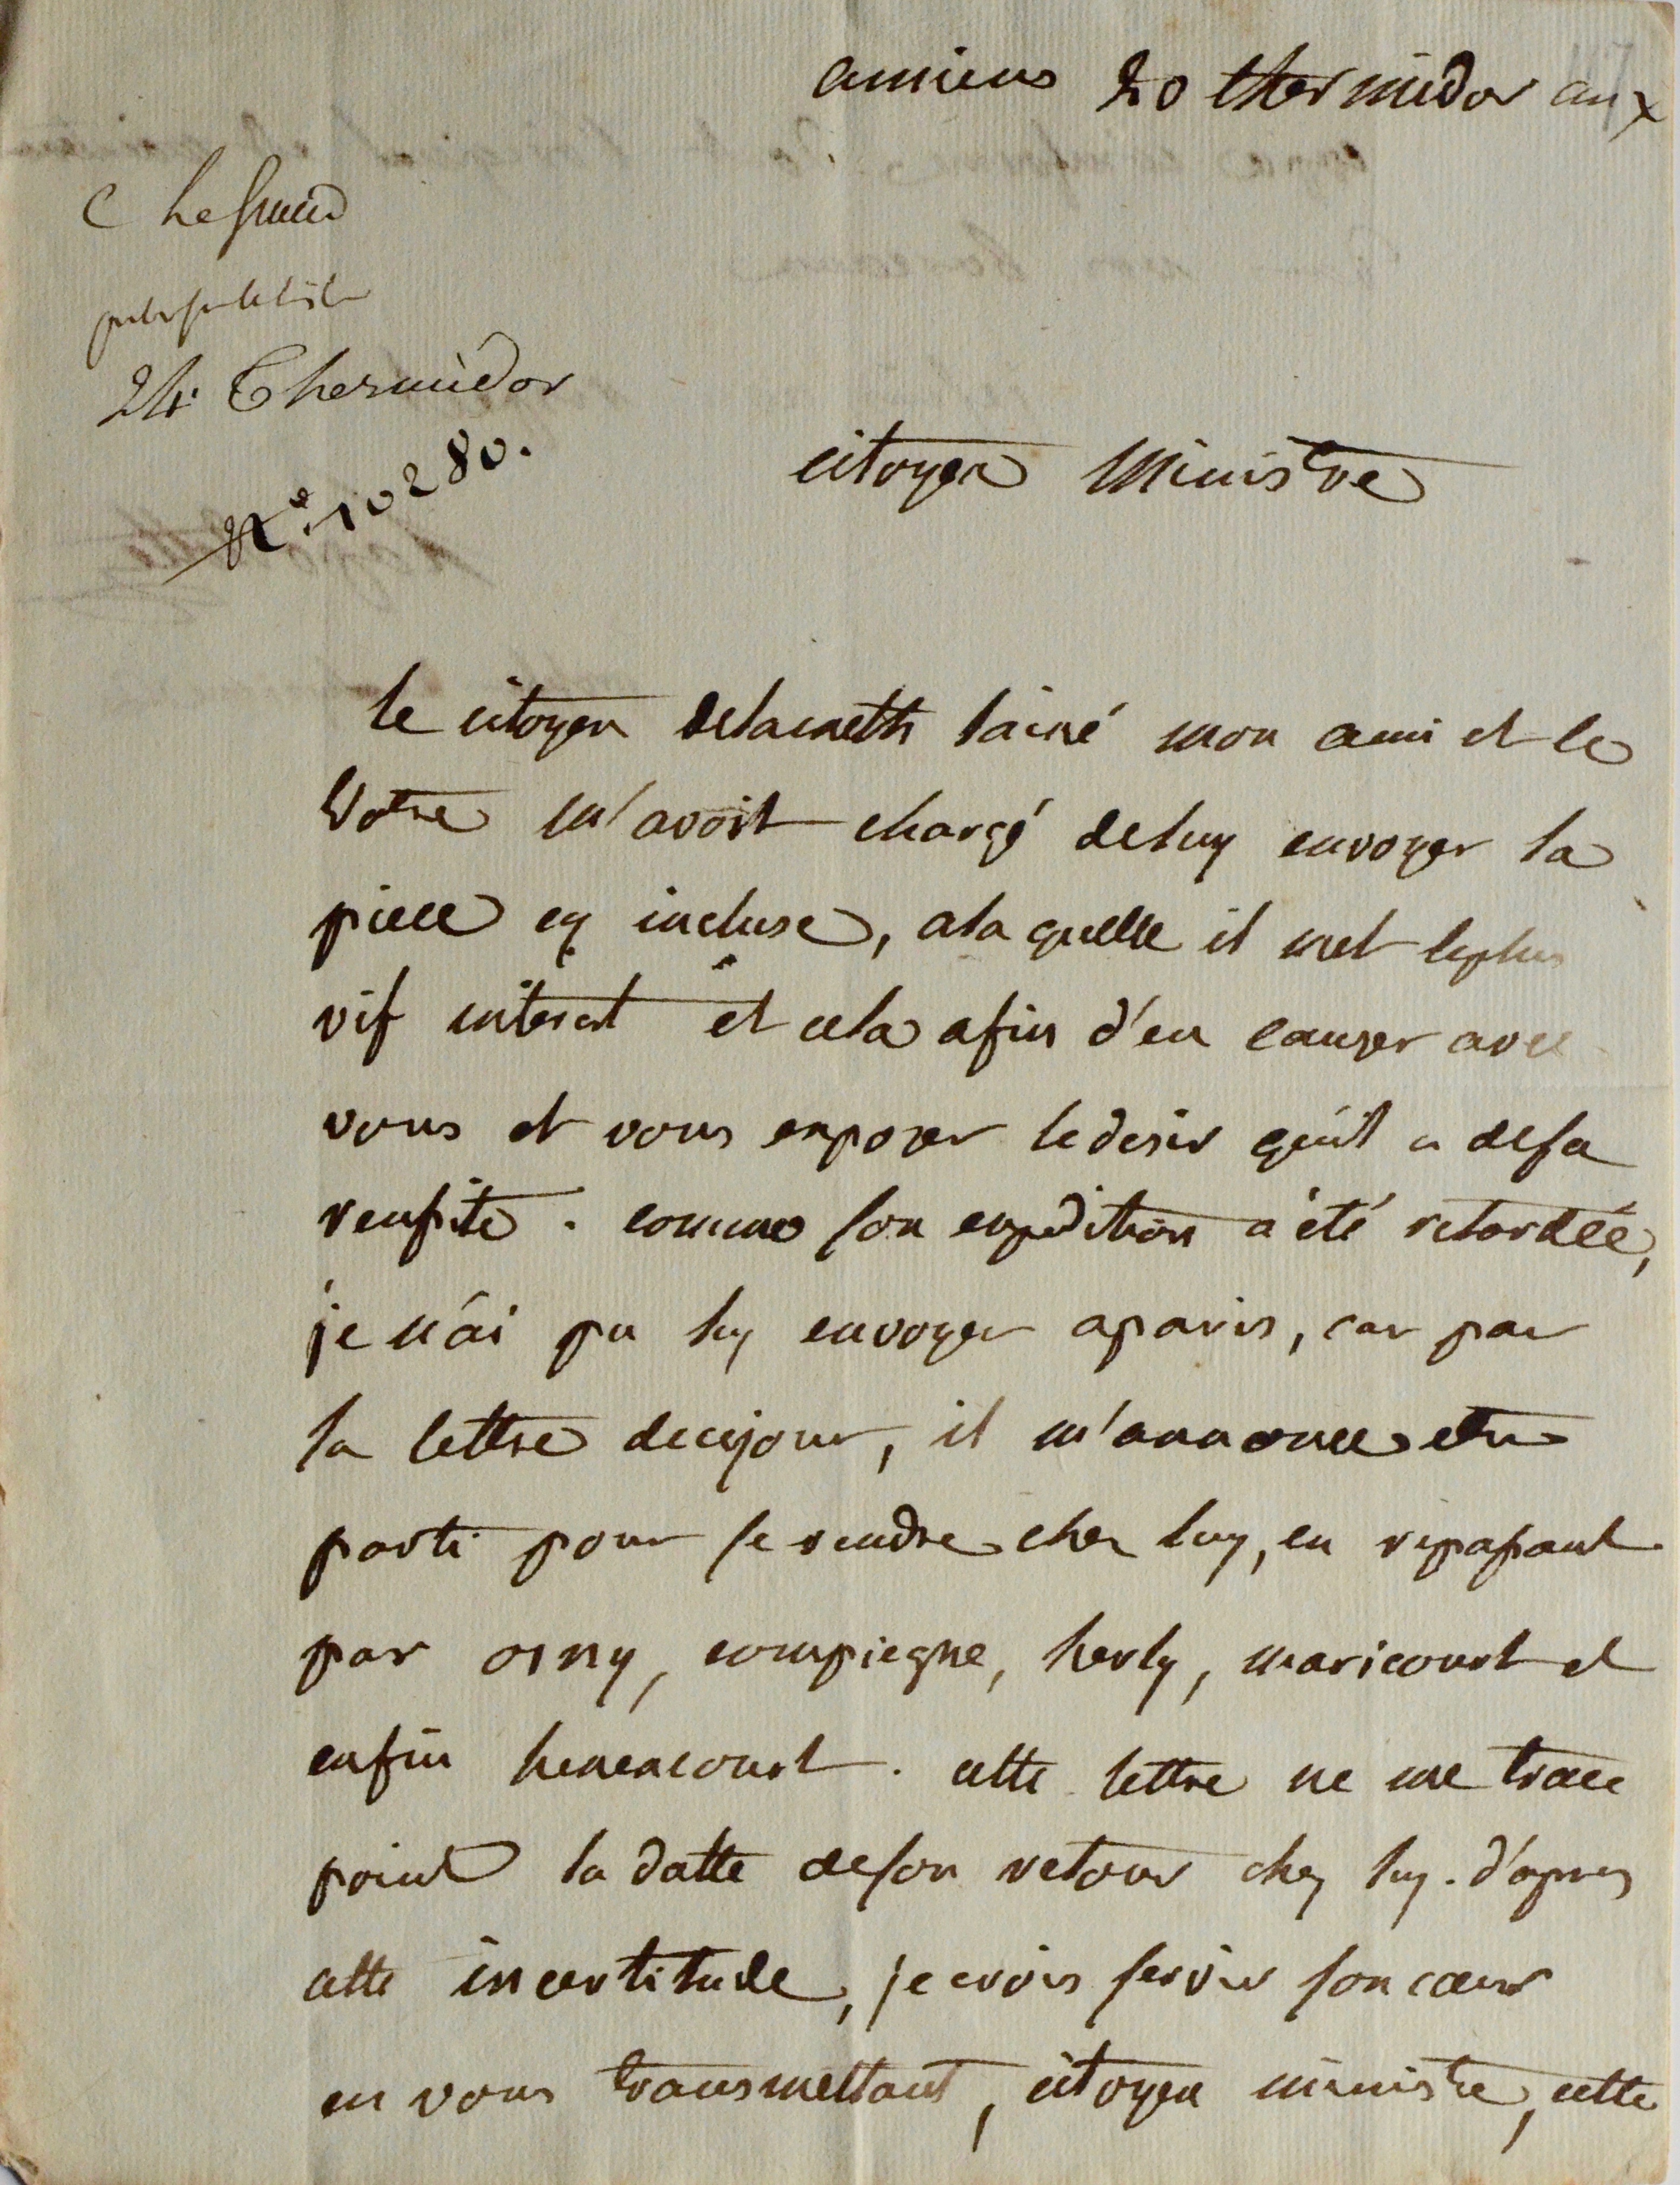 amiens 20 thermidor an x
24 Thermidor
N.º 10280.
citoyen Ministre
le citoyen delameth lainé mon ami et le
Votre m'avoit chargé de luy envoyer la
piece cy incluse, a la quelle il met le plus
vif interest et cela afin d'en causer avec
vous et vous exposer le desir qu'il a de sa
reussite. comme son expedition a été retardée,
je n'ai pu luy envoyer a paris, car par
sa lettre de ce jour, il m'annonce etre
parti pour se rendre chez luy, en repassant
par osny, compiegne, herly, maricourt et
enfin henencourt. cette lettre ne me trace
point la datte de son retour chez luy. d'apres
cette incertitude, je crois servir son cœur
en vous transmettant, citoyen ministre, cette